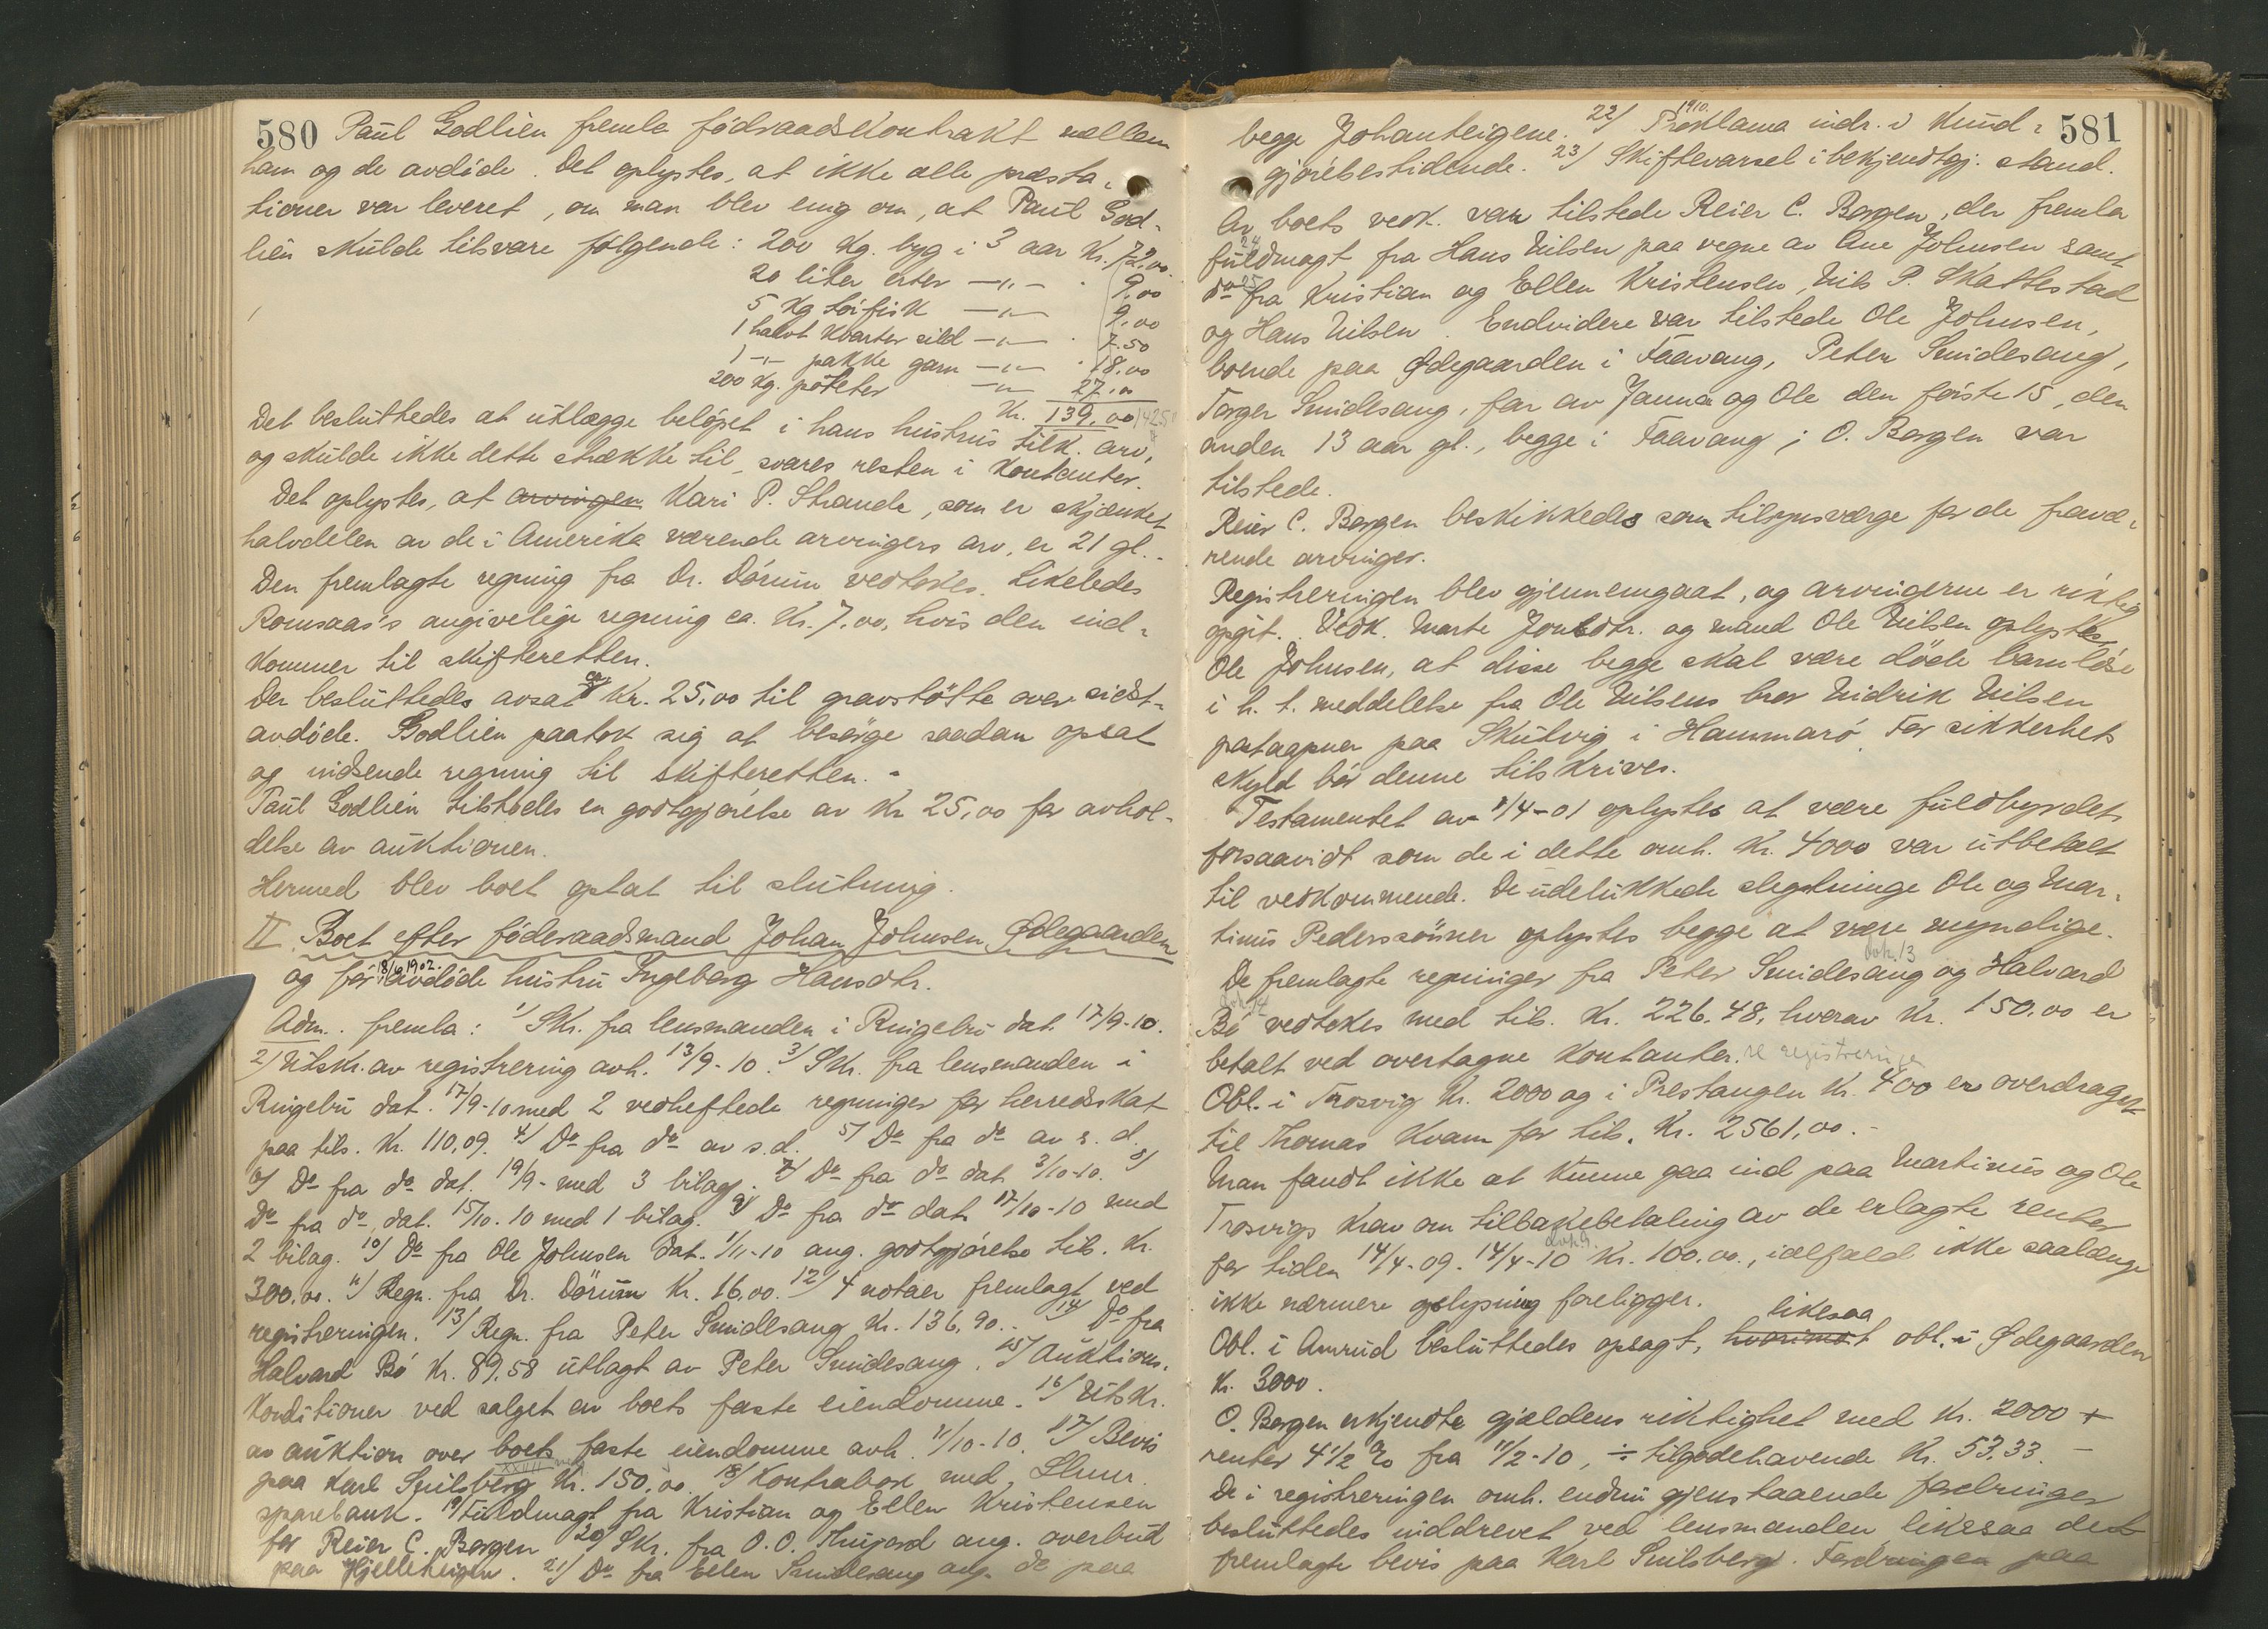 580 Paul Godlien fremla födraadskontrakt mellem
ham og de avdöde. Det oplystes, at ikke alle præsta-
tioner var leveret, om man blev enig om, at Paul God-
lien skulde tilsvare følgende: 200 Kg. byg i 3 aar Kr. 72.00.
20 liter erter -"- 9.00
5 Kg törfisk -"- 9.00
1 halvt kvarter sild -"- 7.50
1 -"- pakke garn -"- 18.00
200 Kg. poteter -"- 27.00
Kr. 139.00
Det besluttedes at utlægge belöpet i hans hustrus tilk. arv,
og skulde ikke dette strække til, svares resten i kontanter.
Det oplystes, at arvingen Kari P. Strande, som er skjænket
halvdelen av de i Amerika værende arvingers arv, er 21 gl.
Den fremlagte regning fra Dr. Dörum vedtokes. Likeledes
Romsaas's angivelige regning ca. Kr. 7.00, hvis den ind-
kommer til skifteretten.
Der besluttedes avsat ca Kr. 25.00 til gravstötte over sidst-
avdöde. Godlien paatok sig at besörge saadan opsat
og indsende regning til skifteretten. -
Paul Godlien tilstodes en godtgjörelse av Kr 25.00 for avhol-
delse av auktionen.
Hermed blev boet optat til slutning.
II Boet efter föderaadsmand Johan Johnsen Ødegaarden
og før 18/6 1902 avdöde hustru Ingeborg Hansdtr.
Adm. fremla: 1/ Skr. fra lensmanden i Ringebu dat. 17/9-10.
2/ Utskr. av registrering avh. 13/9-10. 3/ Skr. fra lensmanden i
Ringebu dat. 17/9-10 med 2 vedheftede regninger for herredsskat
paa tils. Kr. 110.09. 4/ Do fra do av s.d. 5/ Do fra do av s.d.
6/ Do fra do dat. 19/9- med 3 bilag. 7/ Do fra do dat 3/10-10. 8/
Do fra do, dat. 15/10.10 med 1 bilag. 9/ Do fra do dat 17/10-10 med
2 bilag. 10/ Do fra Ole Johnsen dat. 1/11-10 ang. godtgjörelse tils. Kr.
300.00. 11/ Regn. fra Dr. Dörum Kr. 16.00. 12/ 4 notaer fremlagt ved
registreringen. 13/ Regn. fra Peter Smidesang Kr. 136.90. 14/ Do fra
Halvard Bö Kr. 89.58 utlagt av Peter Smidesang. 15/ Auktions-
konditioner ved salget av boets faste eiendomme. 16/ Utskr.
av auktion over boets faste eiendomme avh. 11/10-10. 17/ Bevis
paa Karl Snilsberg Kr. 150.00. 18/ Kontrabok med
sparebank. 19/ Fuldmagt fra Kristian og Ellen Kristensen
for Reier C. Borgen 20/ Skr. fra O. O. ang. overbud
paa Hjelleteigen. 21/ Do fra Eelen Smidesang ang. do paa
581
begge Johanteigene. 22/ 1910. Proklama indr. i Kund-
gjörelsestidende. 23/ Skiftevarsel i bekjendtgj. stand.
Av boets vedk. var tilstede Reier C. Borgen, der fremla
24 fuldmagt fra Hans Nilsen paa vegne av Ane Johnsen samt
do 25 fra Kristian og Ellen Kristensen, Nils P. Skattestad
og Hans Nilsen. Endvidere var tilstede Ole Johnsen,
boende paa Ødegaarden i Faavang, Peter Smidesang,
Torger Smidesang, far av Janna og Ole den förste 15, den
anden 13 aar gl., begge i Faavang; O. Borgen var
tilstede.
Reier C. Borgen beskikkedes som tilsynsværge for de fravæ-
rende arvinger.
Registreringen blev gjennemgaat, og arvingerne er riktig
opgit. Vedk. Marte Jonsdtr. og mand Ole Nilsen oplystes
Ole Johnsen, at disse begge skal være döde barnlöse
i h. t. meddelelse fra Ole Nilsens bror Nidrik Nilsen
postaapner paa Skutvig i Hammarö. For sikkerhets
skyld bör denne tilskrives.
Testamentet av 1/4-01 oplystes at være fuldbyrdet
forsaavidt som de i dette omh. Kr. 4000 var utbetalt
til vedkommende. De udelukkede slegtninge Ole og Mar-
tinus Pederssönner oplystes begge at være myndige.
De fremlagte regninger fra Peter Smidesang dok. 13 og Halvard
Bö vedtokes med tils. Kr. 226.48, hvorav Kr. 150.00 er
betalt ved overtagne kontanter. se registreringen
Obl. i Trosvig Kr. 2000 og i Prestangen Kr. 400 er overdraget
til Thomas Kvam for tils. Kr. 2561,00. -
Man fandt ikke at kunne gaa ind paa Martinus og Ole
Trosvigs krav om tilbakebetaling av de erlagte renter
for tiden 14/4-09 - 14/4-10 dok 9. Kr. 100.00, ialfald ikke saalænge
ikke nærmere oplysning foreligger.
Obl. i Amrud besluttedes opsagt, hvorimot likesaa obl. i Ødegaarden
Kr. 3000.
O. Borgen erkjendte gjældens riktighet med Kr. 2000 +
renter 4 1/2 % fra 11/2-10, ÷ tilgodehavende Kr. 53.33. -
De i registreringen omh. endnu gjenstaaende fordringer
besluttedes inddrevet ved lensmanden likesaa det
fremlagte bevis paa Karl Snilsberg. Fordringen paa